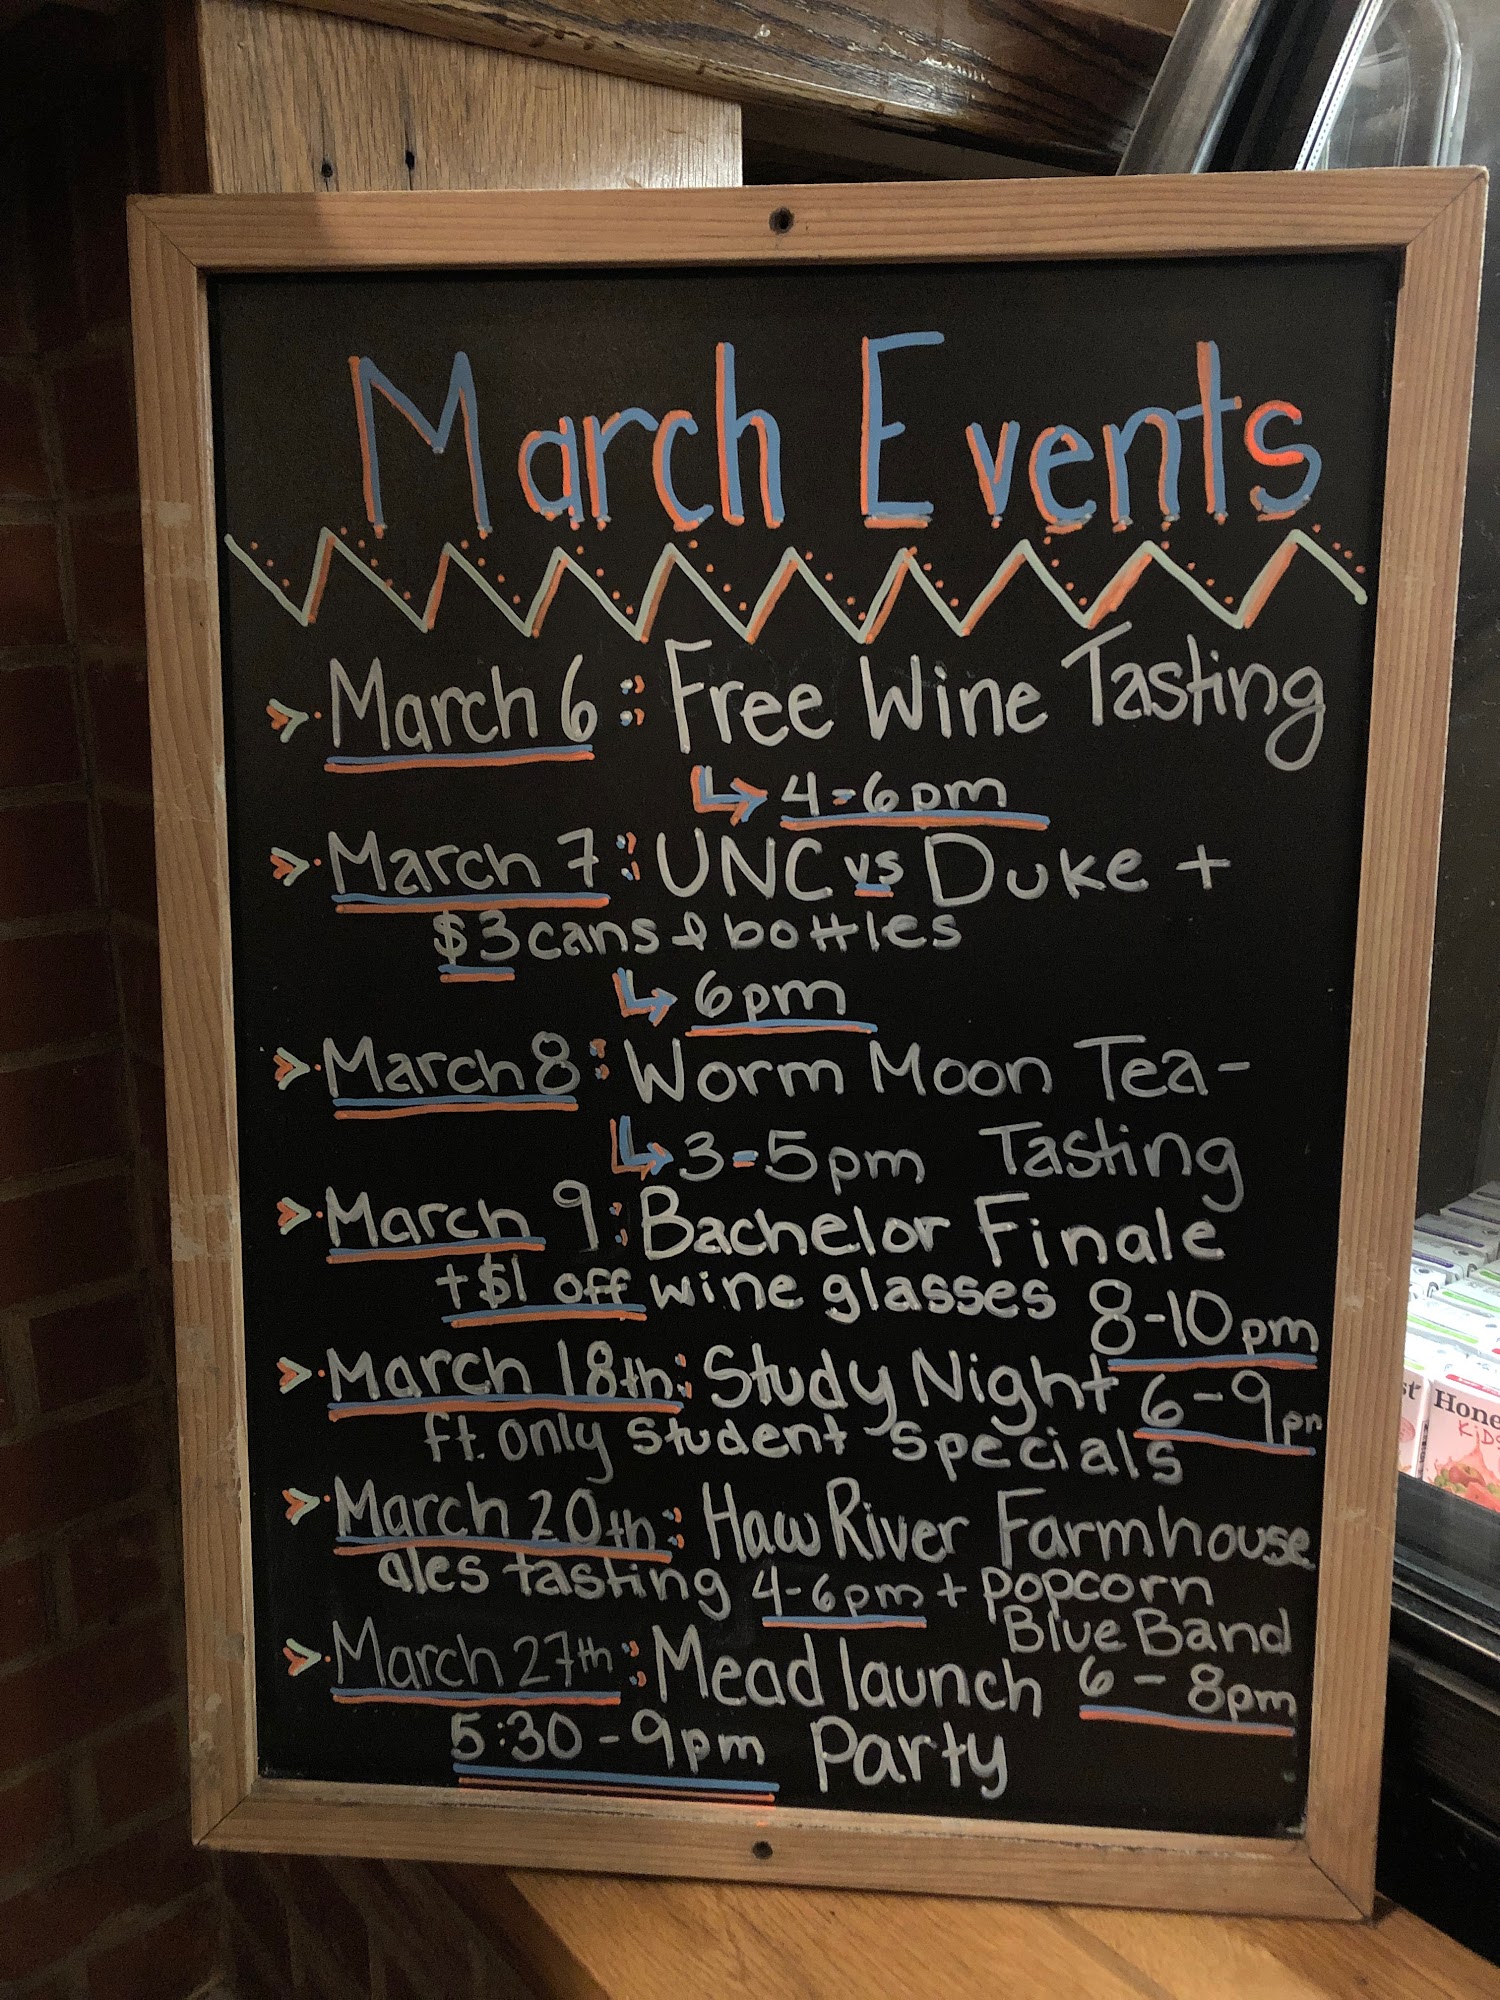 March Events
March 6: Free Wine Tasting
4-6pm
March 7: UNC vs Duke +
$3 cans & bottles
6pm
March 8: Worm Moon Tea-
3-5pm Tasting
March 9: Bachelor Finale
+$1 off wine glasses 8-10pm
March 18th: Study Night 6-9pm
ft. only student specials
March 20th: Haw River Farmhouse
ales tasting 4-6pm + popcorn
Blue Band
6-8pm
March 27th: Mead launch
5:30-9pm Party
Hone
KiDS
st